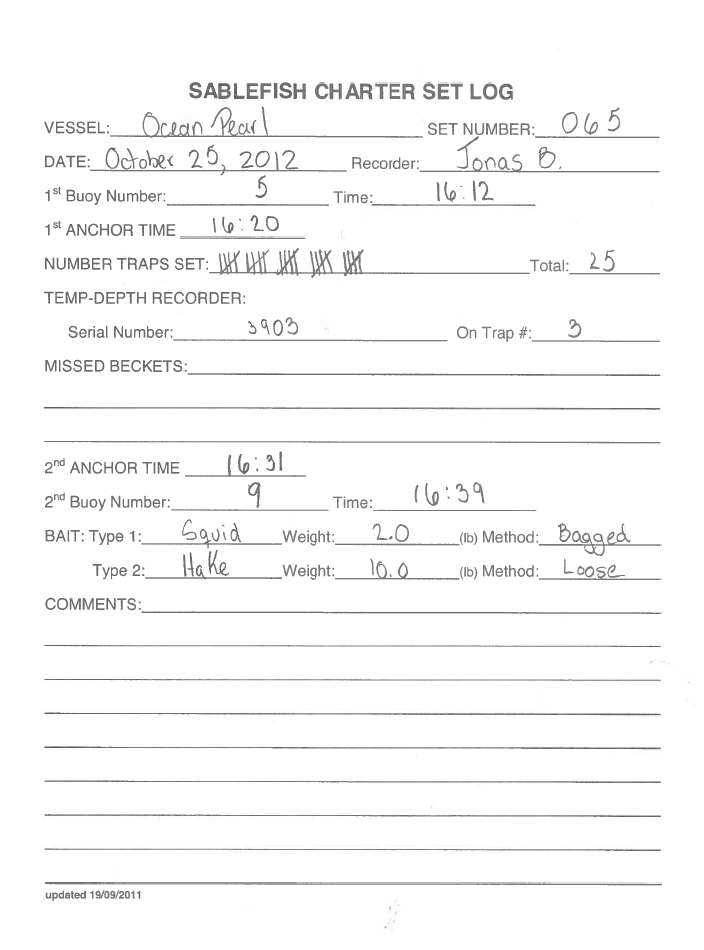 SABLEFISH CHARTER SET LOG
VESSEL: Ocean Pearl SET NUMBER: 065
DATE: October 25, 2012 Recorder: Jonas B.
1st Buoy Number: 5 Time: 16:12
1st ANCHOR TIME 16:20
NUMBER TRAPS SET: Total: 25
TEMP-DEPTH RECORDER:
Serial Number: 3903 On Trap #: 3
MISSED BECKETS:
2nd ANCHOR TIME 16:31
2nd Buoy Number: 9 Time: 16:39
BAIT: Type 1: Squid Weight: 2.0 (lb) Method: Bagged
Type 2: Hake Weight: 10.0 (lb) Method: Loose
COMMENTS:
updated 19/09/2011